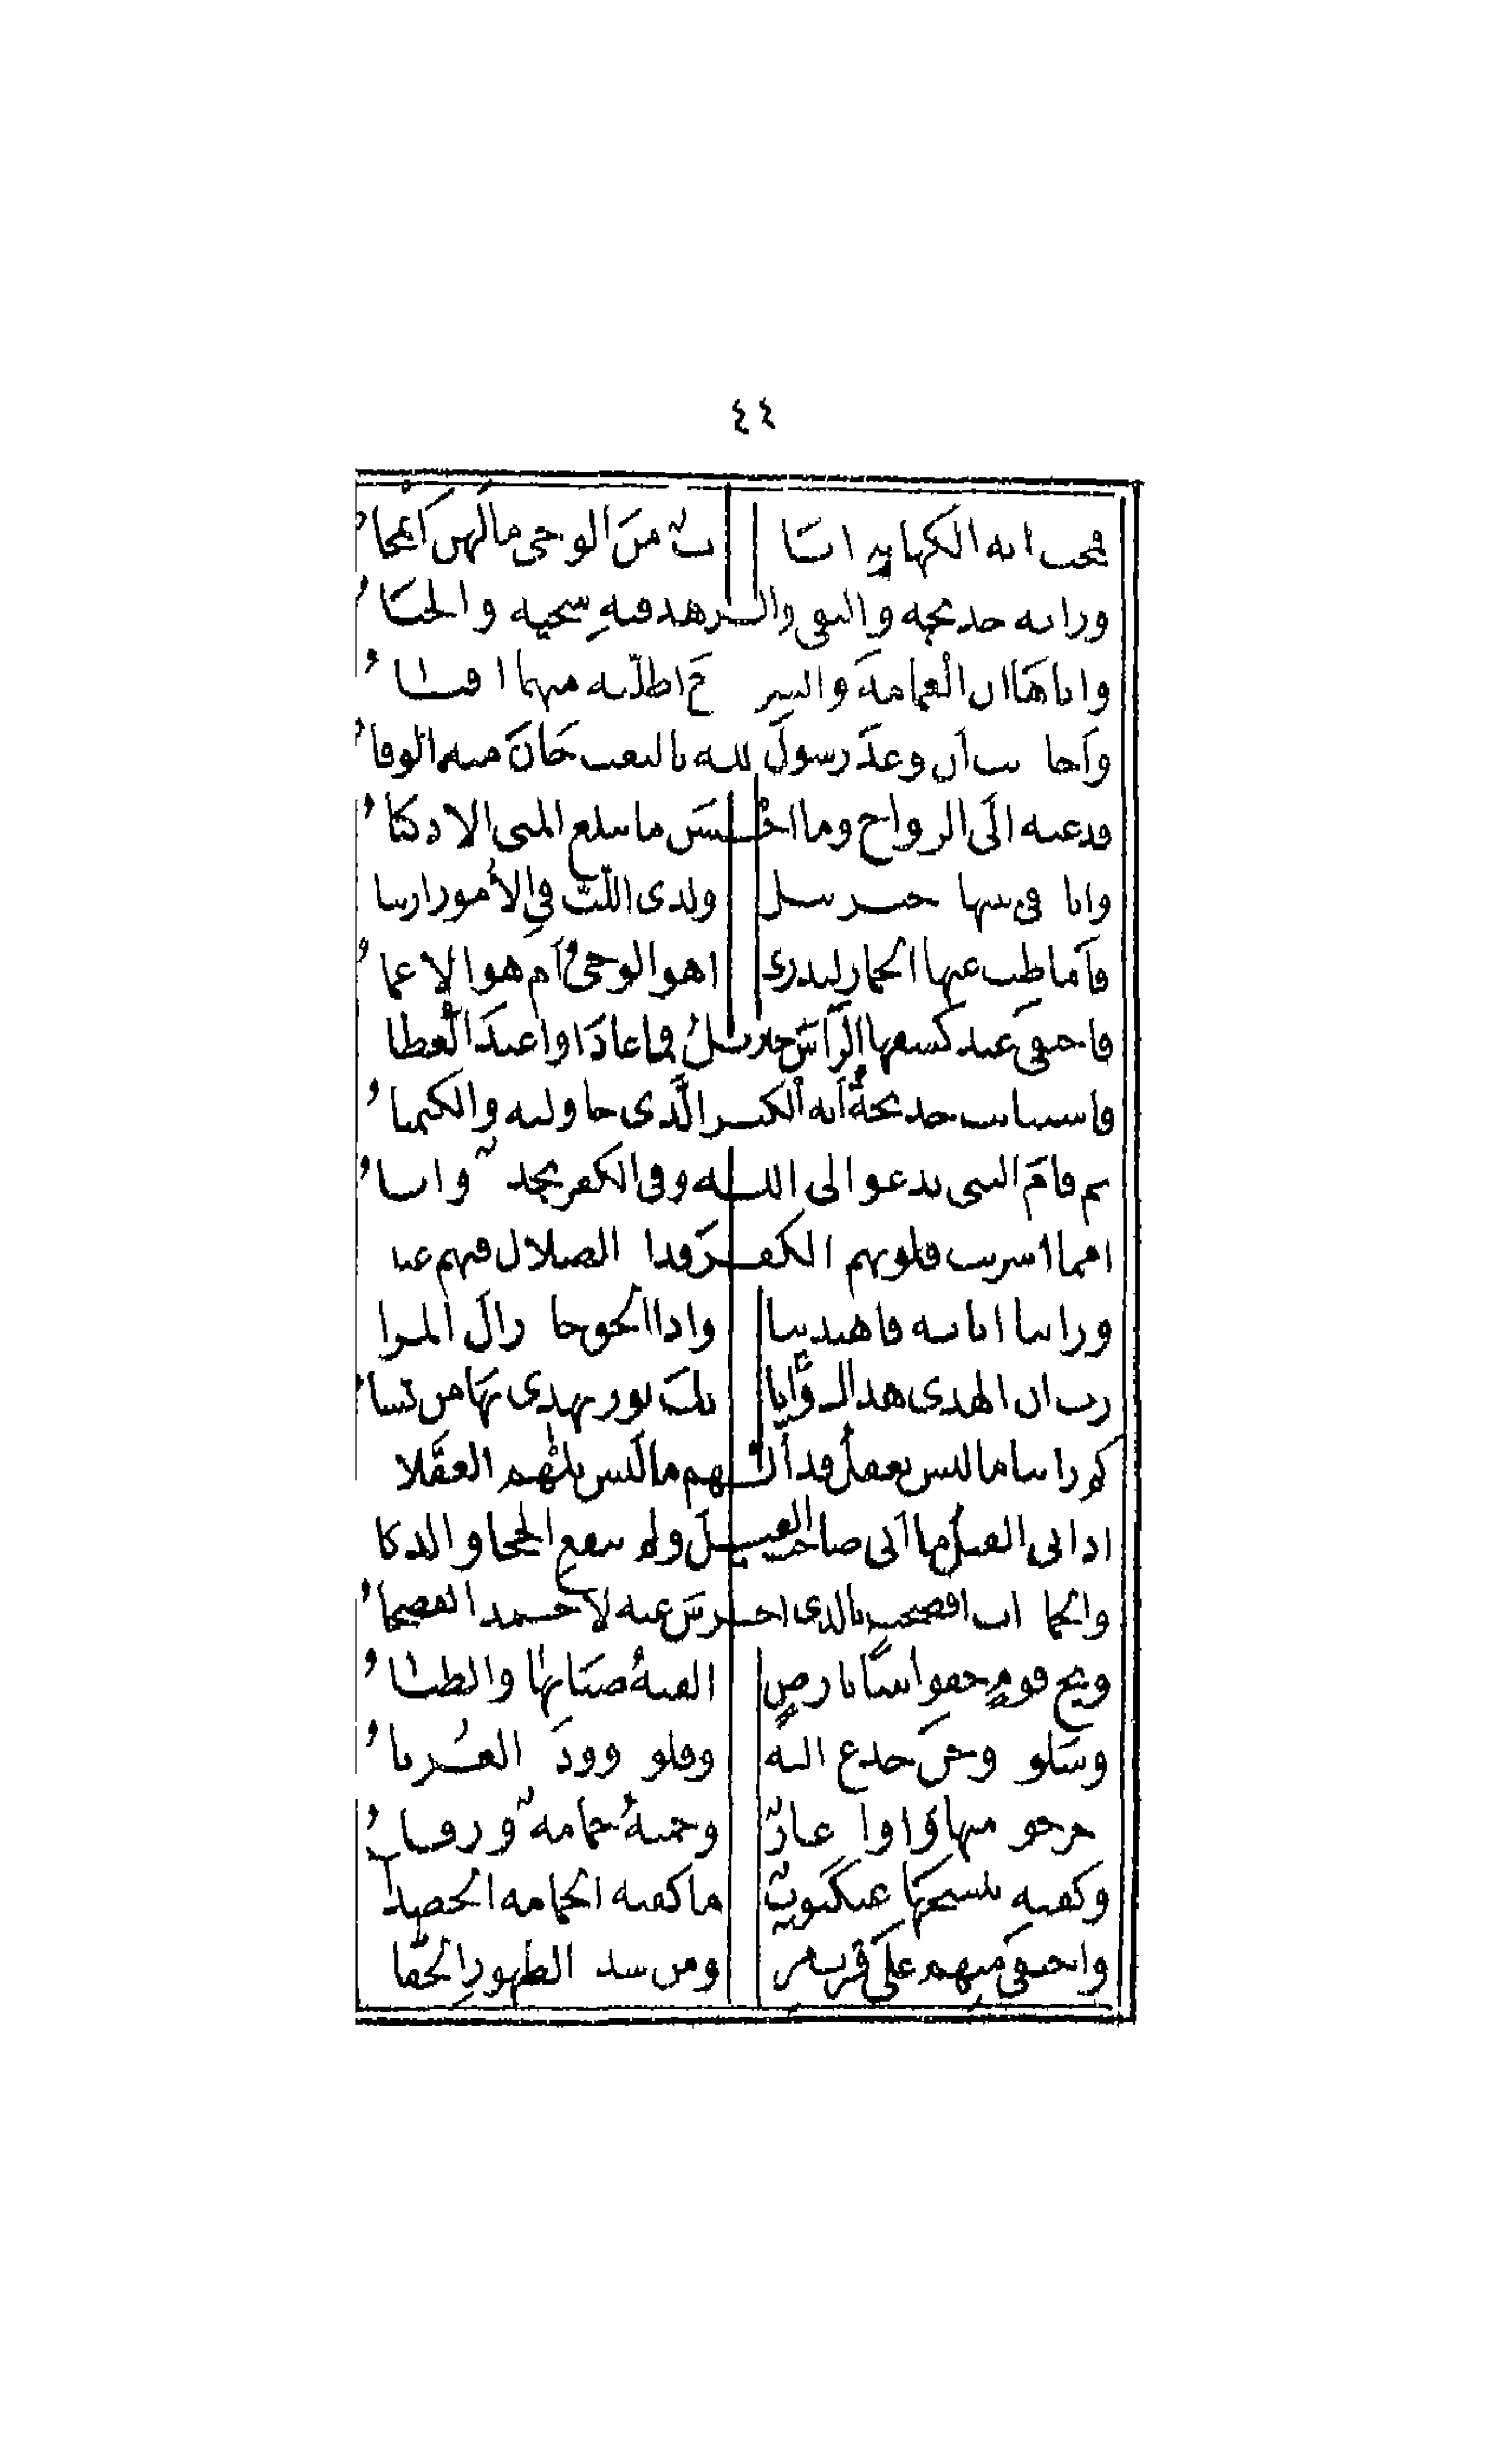 ٤٤
فمحت آية الكهانة آيا ت من الوحي ما لهن انمحاء
ورأته خديجة والتقى والزهد فيه سجية والحياء
وأتاها أن الغمامة والسرح أظلته منهما أفياء
وأحاديث أن وعد رسول الله بالبعث حان منه الوفاء
فدعته إلى الزواج وما أحسن ما يبلغ المنى الأذكياء
وأتاه في بيتها جبرئيل ولذي اللب في الأمور ارتياء
فأماطت عنها الخمار لتدري أهو الوحي أم هو الإغماء
فاختفى عند كشفها الرأس جبريل فما عاد أو أعيد الغطاء
فاستبانت خديجة أنه الكنز الذي حاولته والكيمياء
ثم قام النبي يدعو إلى الله وفي الكفر نجدة وإباء
أمما أشربت قلوبهم الكفر فداء الضلال فيهم عياء
ورأينا آياته فاهتدينا وإذا الحق جاء زال المراء
رب إن الهدى هداك وآيا تك نور تهدي بها من تشاء
كم رأينا ما ليس يعقل قد ألهم ما ليس يلهم العقلاء
إذ أبى الفيل ما أتى صاحب الفيل ولم ينفع الحجا والذكاء
والجمادات أفصحت بالذي أخرس عنه لأحمد الفصحاء
ويح قوم جفوا نبيا بأرض ألفته ضبابها والظباء
وسلوه وحن جذع إليه وقلوه ووده الغرباء
أخرجوه منها وآواه غار وحمته حمامة ورقاء
وكفته بنسجها عنكبوت ما كفته الحمامة الحصداء
واختفى منهم على قرب مرآه ومن شدة الظهور الخفاء